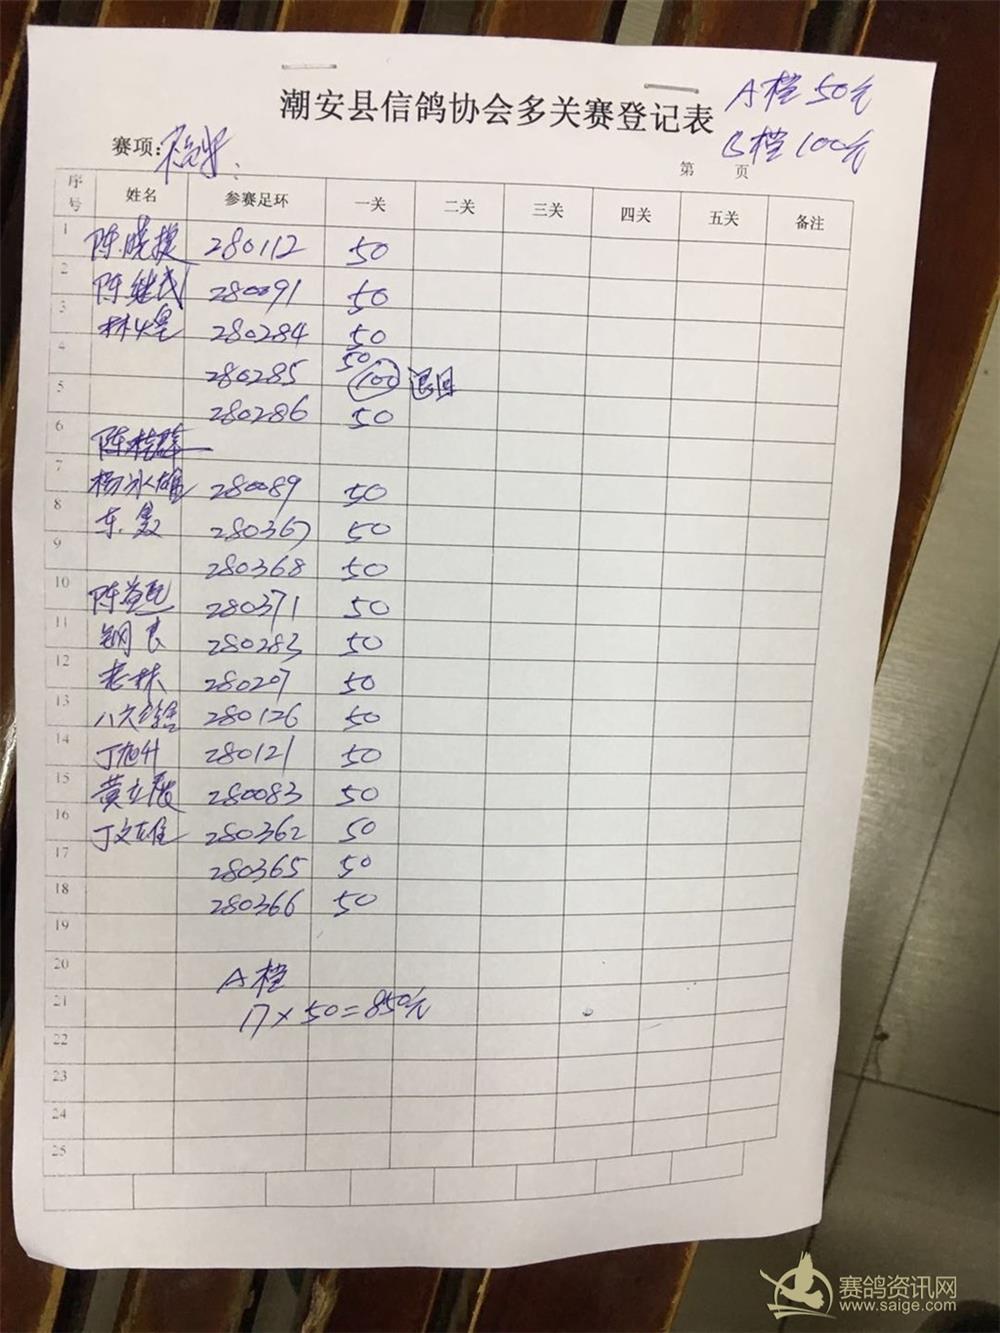 潮安县信鸽协会多关赛登记表
A档 50元
B档 100元
赛项:
第 页
序号 姓名 参赛足环 一关 二关 三关 四关 五关 备注
1 陈晓捷 280112 50
2 陈继武 280091 50
3 林煌 280284 50
4 280285 50 100 退回
5 280286 50
6
7 杨冰雄 280089 50
8 280367 50
9 280368 50
10 280371 50
11 钢良 280283 50
12 老林 280207 50
13 280126 50
14 丁旭升 280121 50
15 280083 50
16 丁文雄 280362 50
17 280365 50
18 280366 50
19
20 A档
21 17×50=850元
22
23
24
25
赛鸽资讯网
www.saige.com